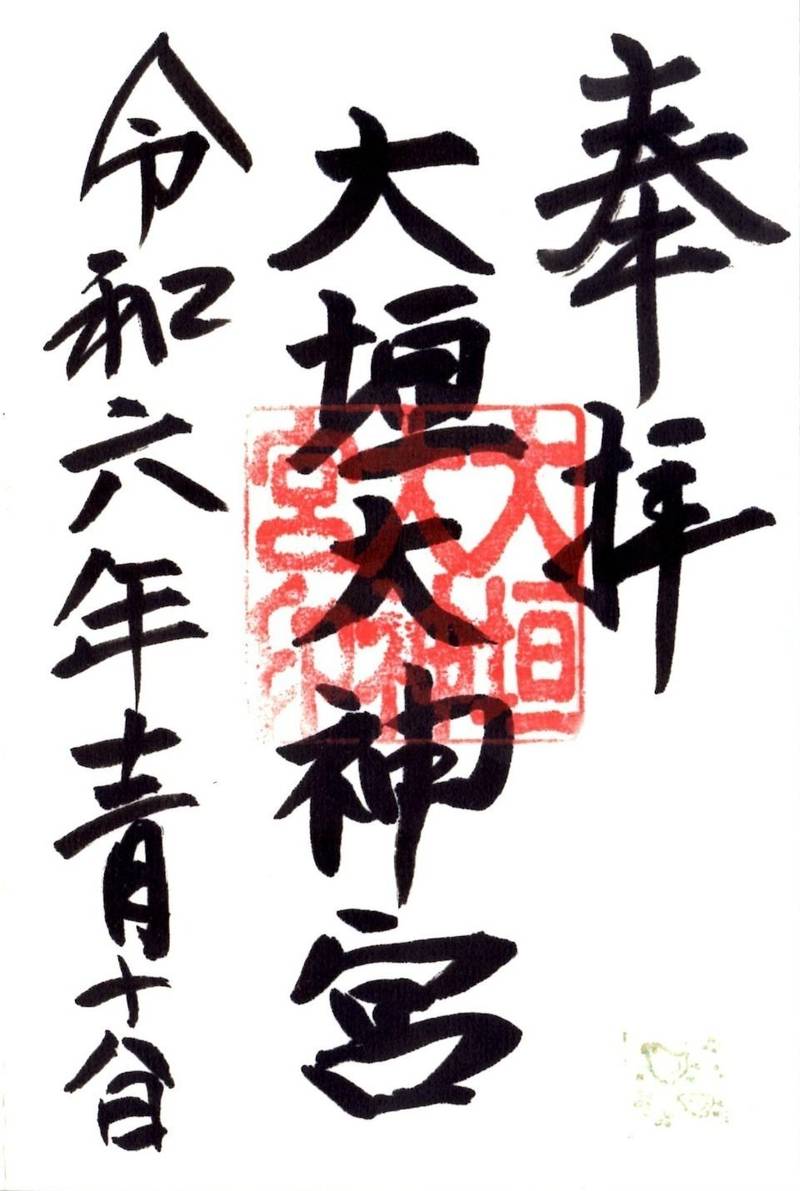 奉拝
大垣大神宮
大垣大神宮印
令和六年十二月十八日